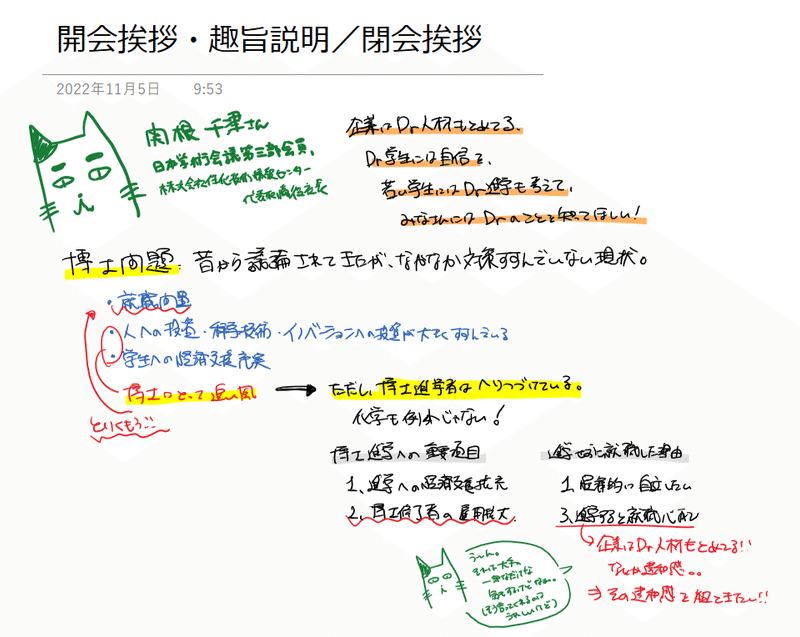 開会挨拶・趣旨説明／閉会挨拶
2022年11月5日 9:53
関根 千津さん
日本学術会議第三部会員、
株式会社住化技術情報センター
代表取締役社長
企業はDr人材もとめてる、
Dr学生には自信を、
若い学生にはDr進学も考えて、
みなさんにはDrのことを知ってほしい！
博士問題、昔から議論されてきたが、なかなか対策すすんでいない現状。
・就職問題
・人への投資・科学技術・イノベーションへの投資が大きくすすんでいる
・学生への経済支援充実
博士にとって追い風
とりくもう!!
ただし、博士進学者はへりつづけている。
化学も例外じゃない！
博士進学への重要項目
1、進学への経済支援拡充
2、博士修了者の雇用拡大
進学せずに就職した理由
1、経済的に自立したい
3、進学すると就職心配
企業はDr人材もとめてる!!
なんか違和感。。
⇒その違和感
うーん。
それは大手の
一部なだけな
気もするけどなぁ。
(そう言ってくれるのは
うれしいけど)